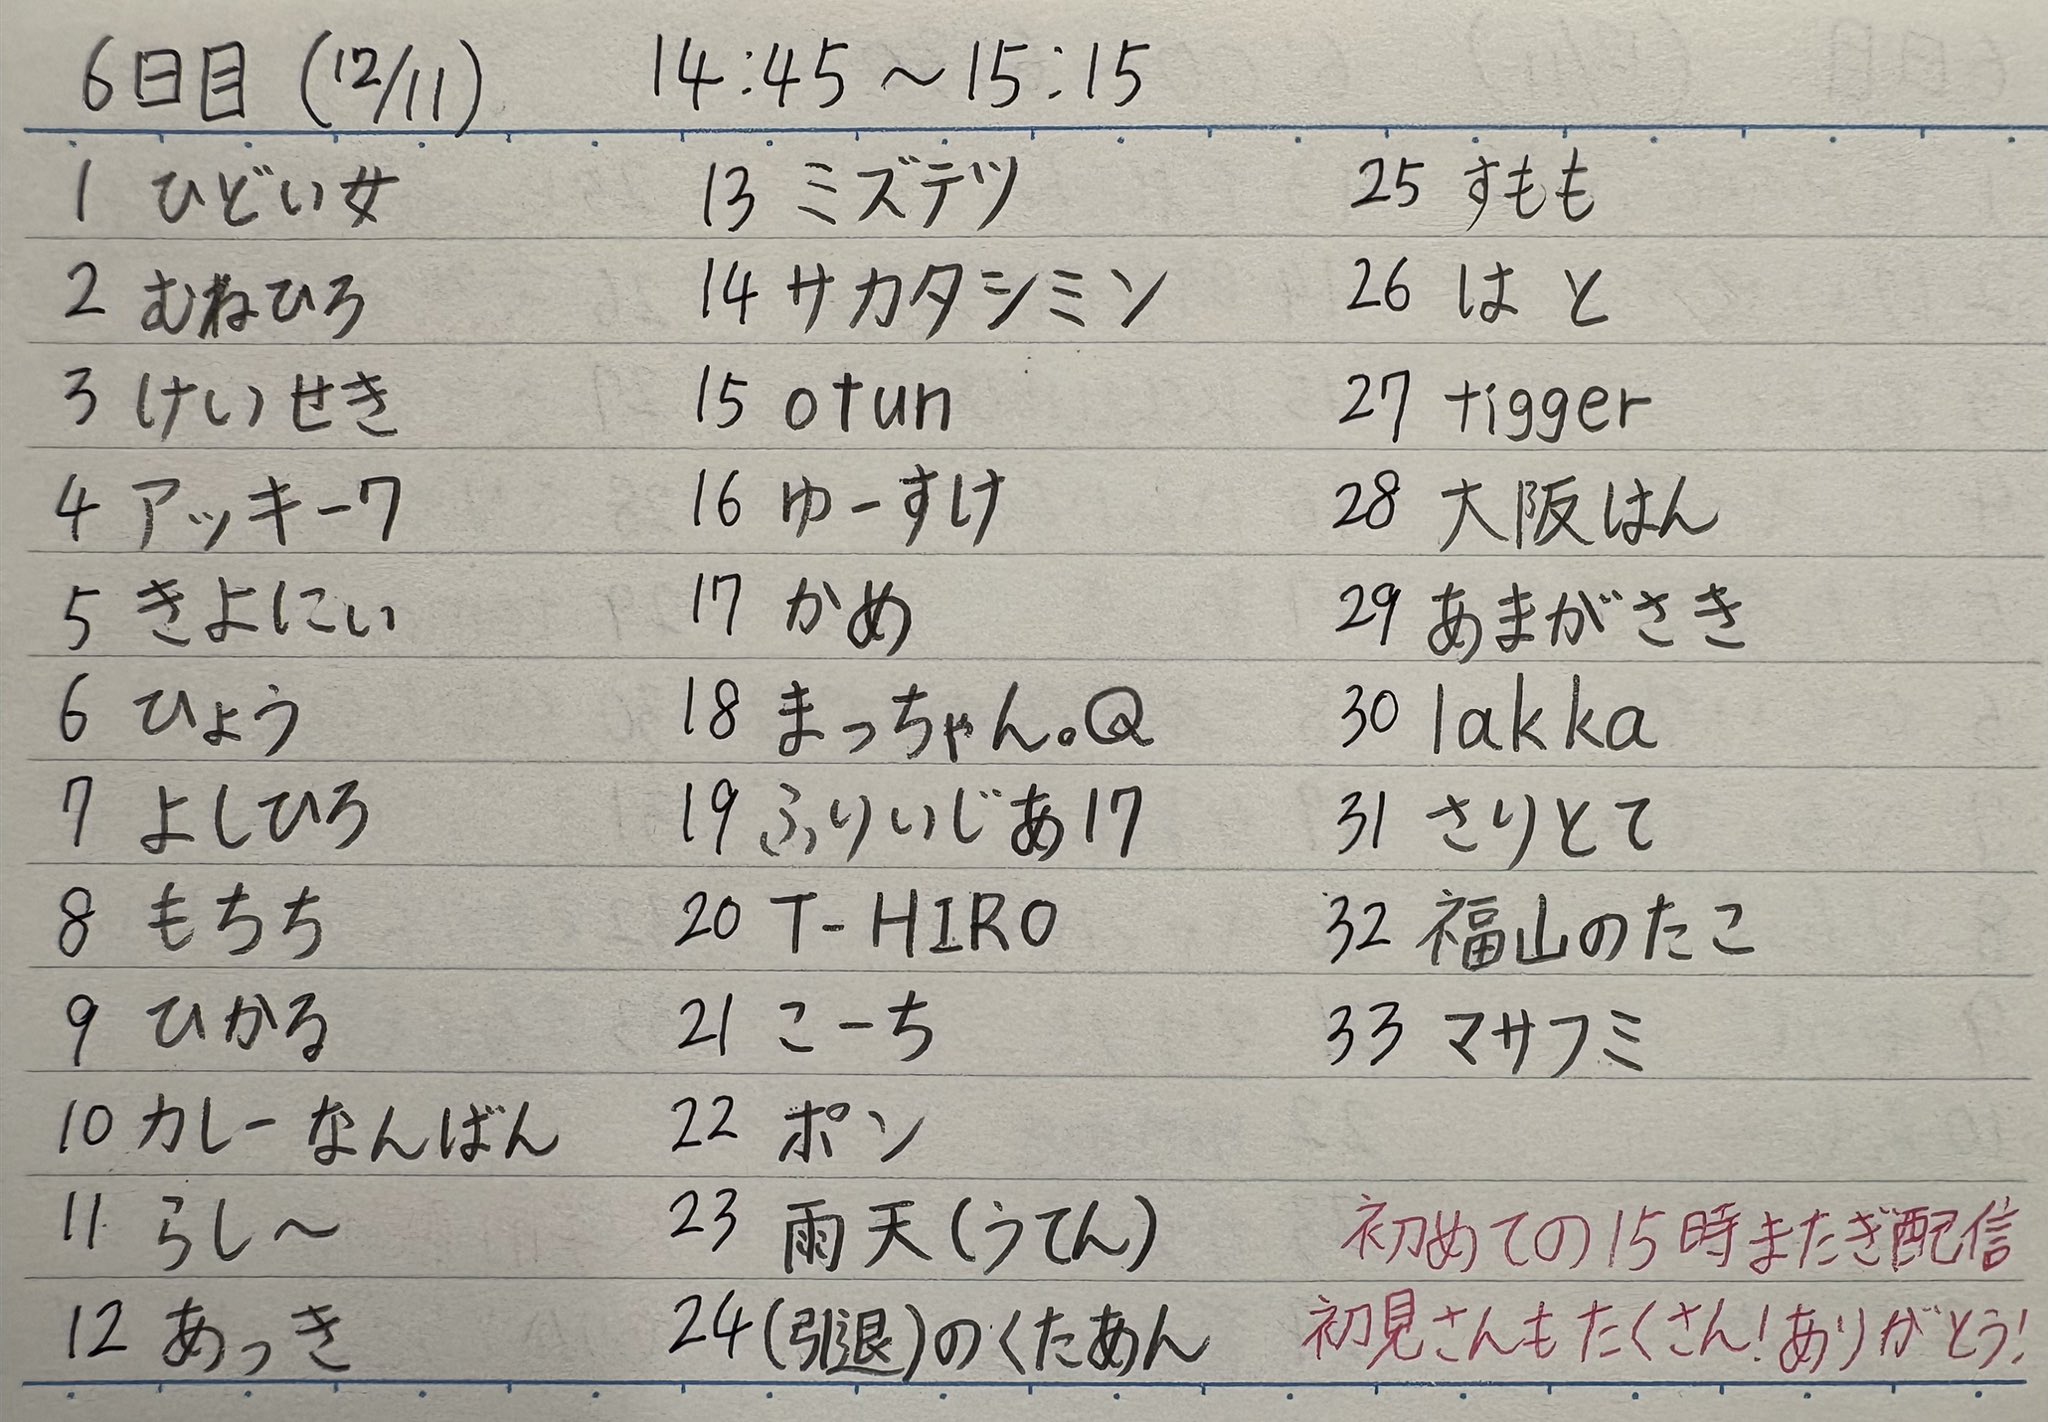 6日目 (12/11) 14:45～15:15
1 ひどい女
2 むねひろ
3 けいせき
4 アッキー7
5 きよにぃ
6 ひょう
7 よしひろ
8 もちち
9 ひかる
10 カレーなんばん
11 らし～
12 あっき
13 ミズテツ
14 サカタシミン
15 otun
16 ゆーすけ
17 かめ
18 まっちゃん。Q
19 ふりいじあ17
20 T-HIRO
21 こーち
22 ポン
23 雨天(うてん)
24 (引退)のくたあん
25 すもも
26 はと
27 tigger
28 大阪はん
29 あまがさき
30 lakka
31 さりとて
32 福山のたこ
33 マサフミ
初めての15時またぎ配信
初見さんもたくさん!ありがとう!